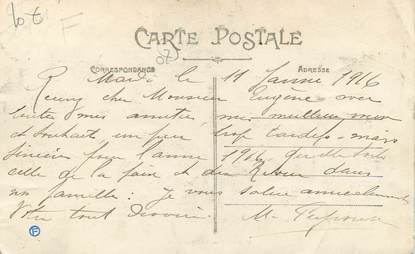 lot F
CARTE POSTALE
CORRESPONDANCE
ADRESSE
Mardi le 11 Janvier 1916
Recevez cher Monsieur Eugène avec
toutes mes amitiés, mes meilleurs vœux
et souhaits un peu trop tardifs mais
sincères pour l'année 1916, que de toute
celle de la paix et du Retour dans
vos familles: Je vous salue amicalement
Votre tout dévoué.
M.